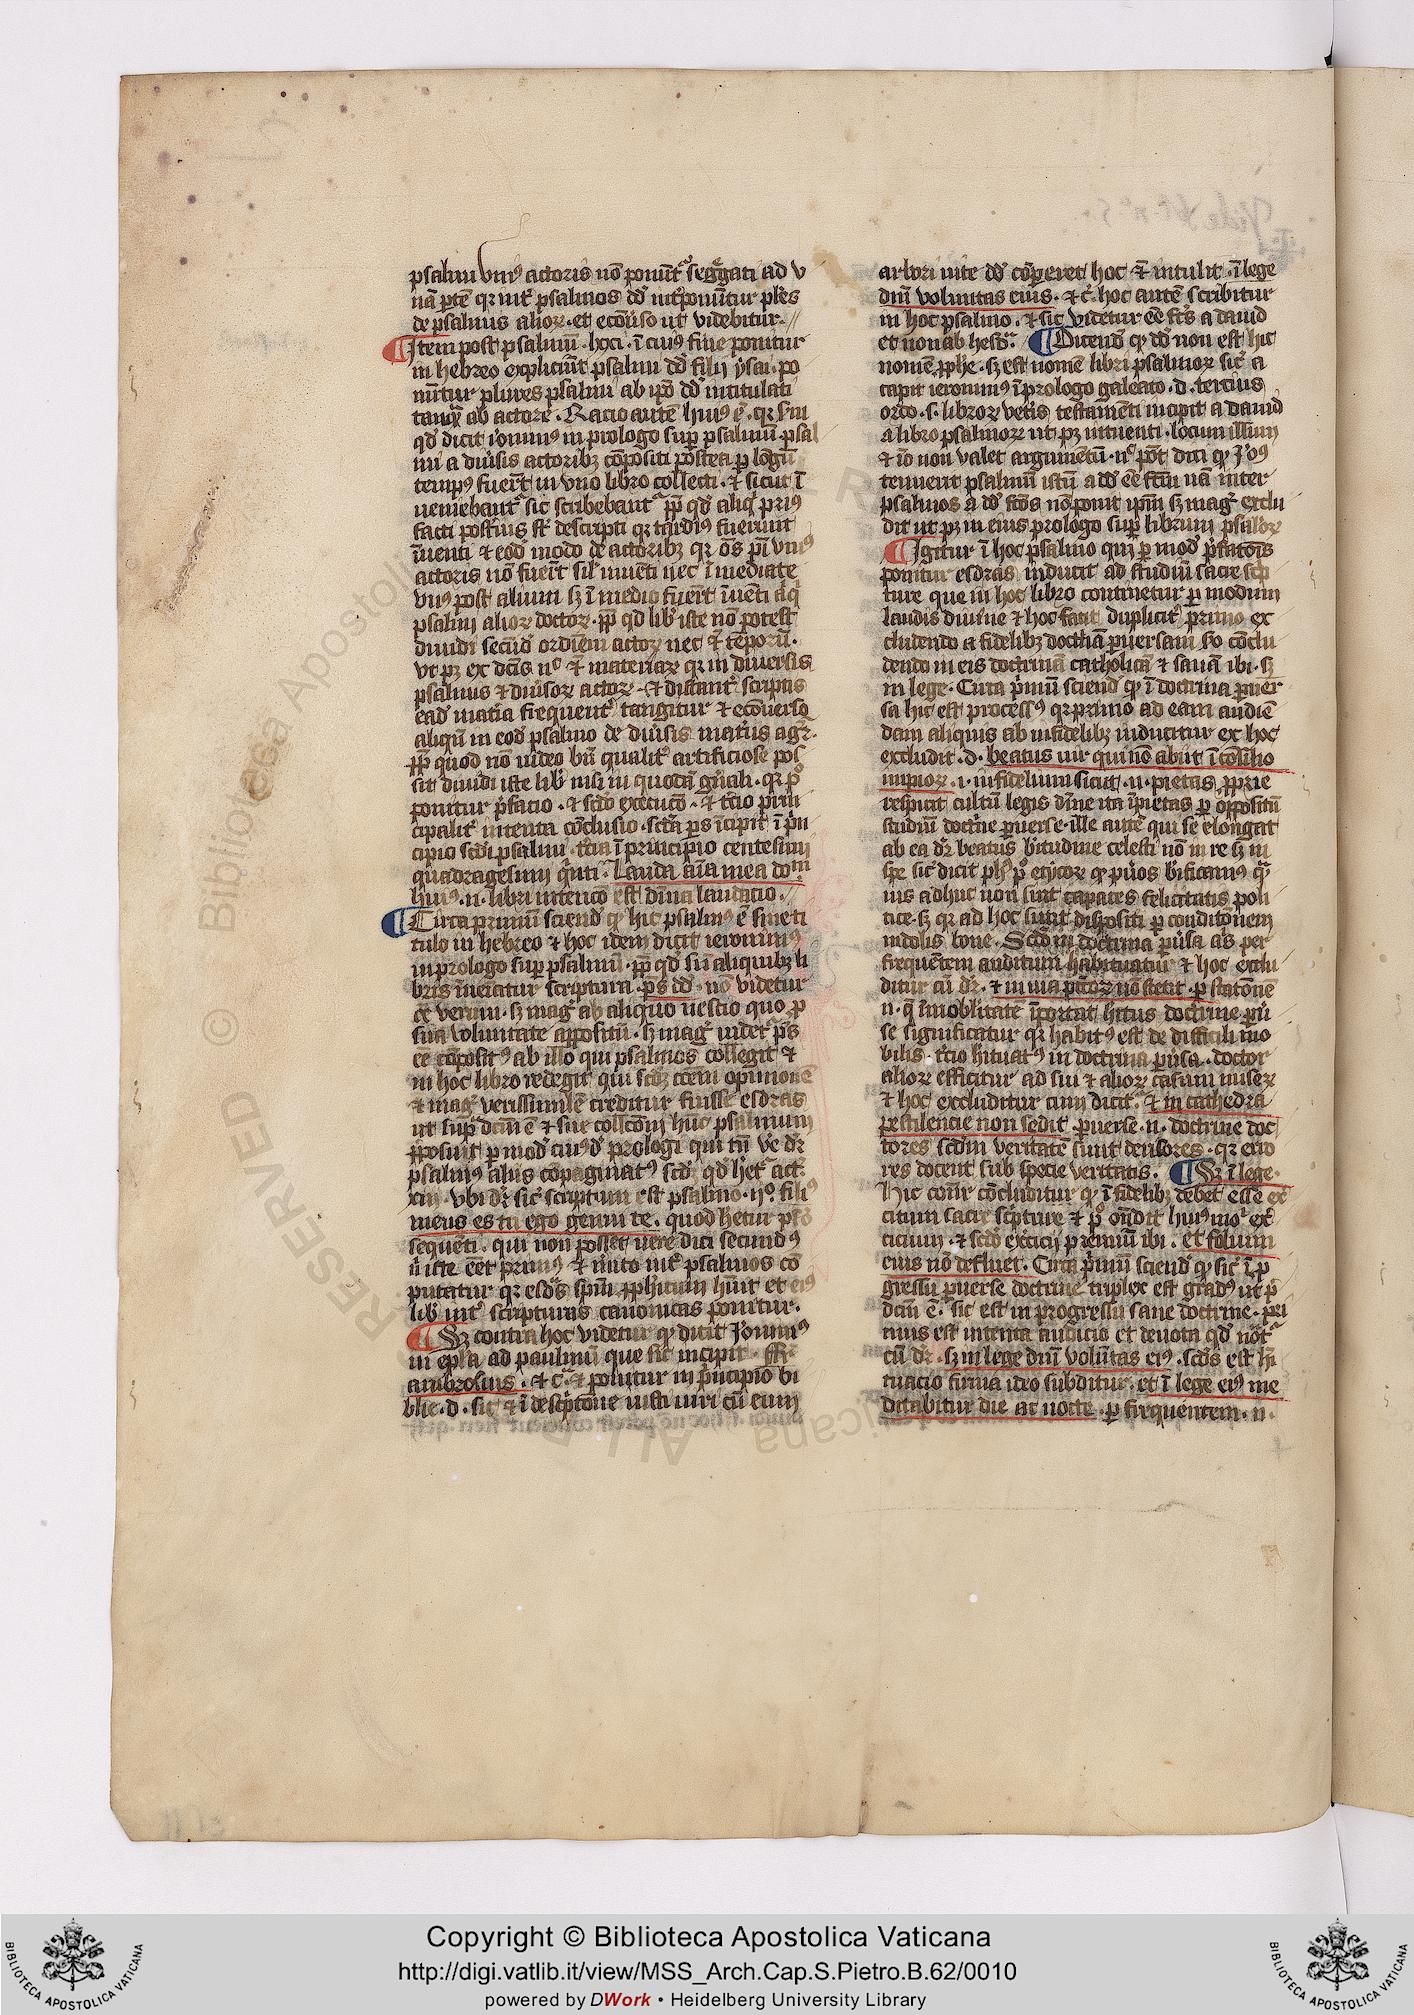 psalmi vniꝰ actoris nō ponūtᷣ seg̃gati ad v
nā ꝑtē qꝛ int̉ psalmos dd̉ int̉ponūtur ples
de psalmis alioꝝ · et ecōu̾so ut videbitur ·
Item post psalmū · lxxi · ī cuiꝰ fine ponitur
in hebreo expliciūt psalmi dd̉ filij ysai · po
nūtur plures psalmi ab ip̄o dd̉ intitulati
tanqͣ ab actore · Racio autē huiꝰ ē · qꝛ sm̄
qd̉ dicit ieronimꝰ in prologo suꝑ psalmū psal
mi a diu̾sis actoribꝫ cōpositi postea ꝑ longū
tempꝰ fuerūt in vno libro collecti · ⁊ sicut ī
ueniebantᷣ sic scribebantᷣ ꝓp̄ qd̉ aliqͥ priꝰ
facti posteriꝰ st̄ descripti qꝛ tardiꝰ fuerunt
īuenti ⁊ eod̉ modo de actoribꝫ qꝛ oēs ps̄i vniꝰ
actoris nō fuerūt sil̉ inuenti nec īmediate
vnꝰ post alium sꝫ ī medio fuerūt īuenti aliqͥ
psalmi alioꝝ doctoꝝ · ꝓp̄ qd̉ lib̉ iste nō potest
diuidi secūdū ordinem actoꝝ nec ⁊̄ tēporū ·
vt pꝫ ex dc̄is nᷤ ⁊ materiaꝝ qꝛ in diuersis
psalmis ⁊ diu̾soꝝ actoꝝ · ⁊ distant̉ scriptis
ead̉ mat̾ia frequent̉ tangitur ⁊ ecōuerso
aliqn̄ in eod̉ psalmo de diu̾sis mat̾iis agitᷣ ·
ꝓp̄ quod nō video bn̄ qualit̉ artificiose pos
sit diuidi iste lib̉ nisi in quodā gn̄ali · qꝛ pͦ
ponitur p̄facio · ⁊ scd̉o execucō · ⁊ t̾cio prin
cipalit̉ intenta cōclusio · scd̉a ps̄ īcipit ī pͥn
cipio scd̉i psalmi · t̾cia ī principio centesimi
quadragesimi qͥnti · Lauda aīa mea domͥ
huiꝰ · n · libri intencō est diuīa laudacio ·
Circa primū sciend̉ qꝫ hic psalmꝰ ē sine ti
tulo in hebreo ⁊ hoc idem dicit ieronimꝰ
in prologo suꝑ psalmū · ꝓp̄ qd̉ si ī aliquibꝫ li
bris inueiatur scriptura · ps̄ dd̉ · nō videtur
ēē verum · sꝫ mag̉ ab aliquo nescio quo ꝓ
sua voluntate appositū · sꝫ mag̉ videtᷣ ps̄
ēē cōpositꝰ ab illo qui psalmos collegit ⁊
in hoc libro redegit qui scd̉ꝫ cōēm opinionē
⁊ mag̉ verissimile creditur fuisse esdras
ut supͣ dc̄m ē ⁊ sue collc̄oni hūc psalmum
ꝓposuit ꝑ mod̉ cuiusd̉ prologi qui tn̄ vͤ dr̄
psalmꝰ aliis cōpaginatꝰ scd̉ qd̉ hētᷣ act̉ ·
xiij · vbi dr̄ sic̉ scriptum est psalmo · ijͦ · filiꝰ
meus es tu ego genui te · quod hētur pͥo
sequēti · qui non posset vere dici secundꝰ
n̄ iste eēt primꝰ ⁊ mͥito int̉ psalmos cō
putatur qꝛ esdras spm̄ ꝓph̉icum hūit et eiꝰ
lib̉ int̉ scripturas canonicas ponitur ·
Sꝫ contra hoc videtur qꝫ dicit Jeronimꝰ
in epl̉a ad paulinū que sic incipit · Fr̄
ambrosius · ⁊ c̉ · ⁊ ponitur in pͥncipio bi
blie · d · sic̉ ⁊ ī descͥptōne iusti viri cū eum
arbori uite dd̉ cōperet hoc ⁊̄ intulit · ī lege
dn̄i voluntas eius · ⁊ c̉ · hoc autē scribitur
in hoc psalmo · ⁊ sic videtur ēē fc̄s a dauid
et non ab hesdᷓ · Dicend̉ qꝫ dd̉ non est hic
nomē ꝓph̉e · sꝫ est nomē libri psalmoꝝ sic̉ a
capit ieronimꝰ ī prologo galeato · d · tercius
ordo · s · libroꝝ vet̾is testamēti incipit a dauid
a libro psalmoꝝ ut pꝫ intuenti · locum illum
⁊ iō non valet argumentū · nͦ pōt dici qꝫ Jerꝰ
tenuerit psalmū istū a dd̉ ēē fc̄m nā inter
psalmos a dd̉ fc̄os nō ponit ip̄m sꝫ mag̉ exclu
dit ut pꝫ in eius prologo suꝑ librum psalmoꝝ
Igitur ī hoc psalmo qui ꝑ mod̉ p̄fatōis
ponitur esdras inducit ad studiū sacre scͥp
ture que in hoc libro continetur ꝑ modum
laudis diuine ⁊ hoc facit duplicit̉ primo ex
cludendo a fidelibꝫ doctrinā ꝑuersam scd̉o cōclu
dendo in eis doctrinā catholicā ⁊ sanā ibi · sꝫ
in lege · Circa pͥmū sciend̉ qꝫ ī doctrina ꝑuer
sa hic est processꝰ qꝛ primo ad eam audiē
dam aliquis ab infidelibꝫ inducitur ex hoc
excludit · d · beatus vir qui nō abijt ī cōsilio
impioꝝ · i · infidelium sicut · n · pietas ꝓprie
respicit cultū legis diu̾ine ita īpietas ꝑ oppositū
studiū doctͥne ꝑuerse · ille autē qui se elongat
ab ea dr̄ beatus b̾itudine celesti nō in re sꝫ in
spe sic̉ dicit phs̉ pͦ eticoꝝ qꝫ pu̾os b̾ificamꝰ qͣ
uis adhuc non sunt capaces felicitatis poli
tice · sꝫ qꝛ ad hoc sunt dispositi ꝑ condicōnem
indolis bone · Scd̉o in doctrina ꝑu̾sa as ꝑ
frequētem auditum habituatur ⁊ hoc exclu
ditur cū dr̄ · ⁊ in uia pctōꝝ nō stetit · ꝑ statōnē
n · qͥ īmobilitatē īportat hitus doctrine ꝑu̾
se significatur qꝛ habitꝰ est de difficili mo
bilis · t̾cio hituatꝰ in doctrina ꝑu̾sa · doctor
alioꝝ efficitur ad sui ⁊ alioꝝ casum miseꝝ
⁊ hoc excluditur cum dicitᷣ · ⁊ in cathedra
pestilencie non sedit ꝑuerse · n · doctrine doc
tores scd̉m veritatē sunt derisores · qꝛ erro
res docent sub specie veritatis · Sꝫ ī lege ·
Hic cōn̄r cōcluditur qꝫ ī fidelibꝫ debet esse ex̾
citium sacre scͥpture ⁊ pͦ on̄dit huiꝰmoͥ ex̾
cicium · ⁊ scd̉o ex̾cicij premiū ibi · et folium
eius nō defluet · Circa pͥmū sciend̉ qꝫ sic̉ ī ꝓ
gressu ꝑuerse doctrine triplex est gradꝰ ut pͥ
dc̄m ē · sic est in progressu sane doctrine · pri
mus est intenta audicio et deuota qd̉ notᷣ
cū dr̄ · sꝫ in lege dn̄i volūtas eiꝰ · scd̉s est hi̾
tuacio firma ideo subditur · et ī lege eiꝰ me
ditabitur die ac nocte · ꝑ frequentem · n ·
Copyright © Biblioteca Apostolica Vaticana
http://digi.vatlib.it/view/MSS_Arch.Cap.S.Pietro.B.62/0010
powered by DWork • Heidelberg University Library